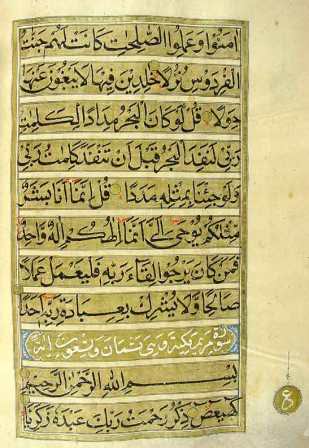 امنوا وعملوا الصلحت كانت لهم جنت
الفردوس نزلا خلدين فيها لا يبغون عنها
حولا قل لو كان البحر مدادا لكلمت
ربي لنفد البحر قبل ان تنفد كلمت ربي
ولو جئنا بمثله مددا قل انما انا بشر
مثلكم يوحى الي انما الهكم اله واحد
فمن كان يرجوا لقاء ربه فليعمل عملا
صالحا ولا يشرك بعبادة ربه احدا
سورة مريم مكية وهي ثمان وتسعون اية
بسم الله الرحمن الرحيم
كهيعص ذكر رحمت ربك عبده زكريا